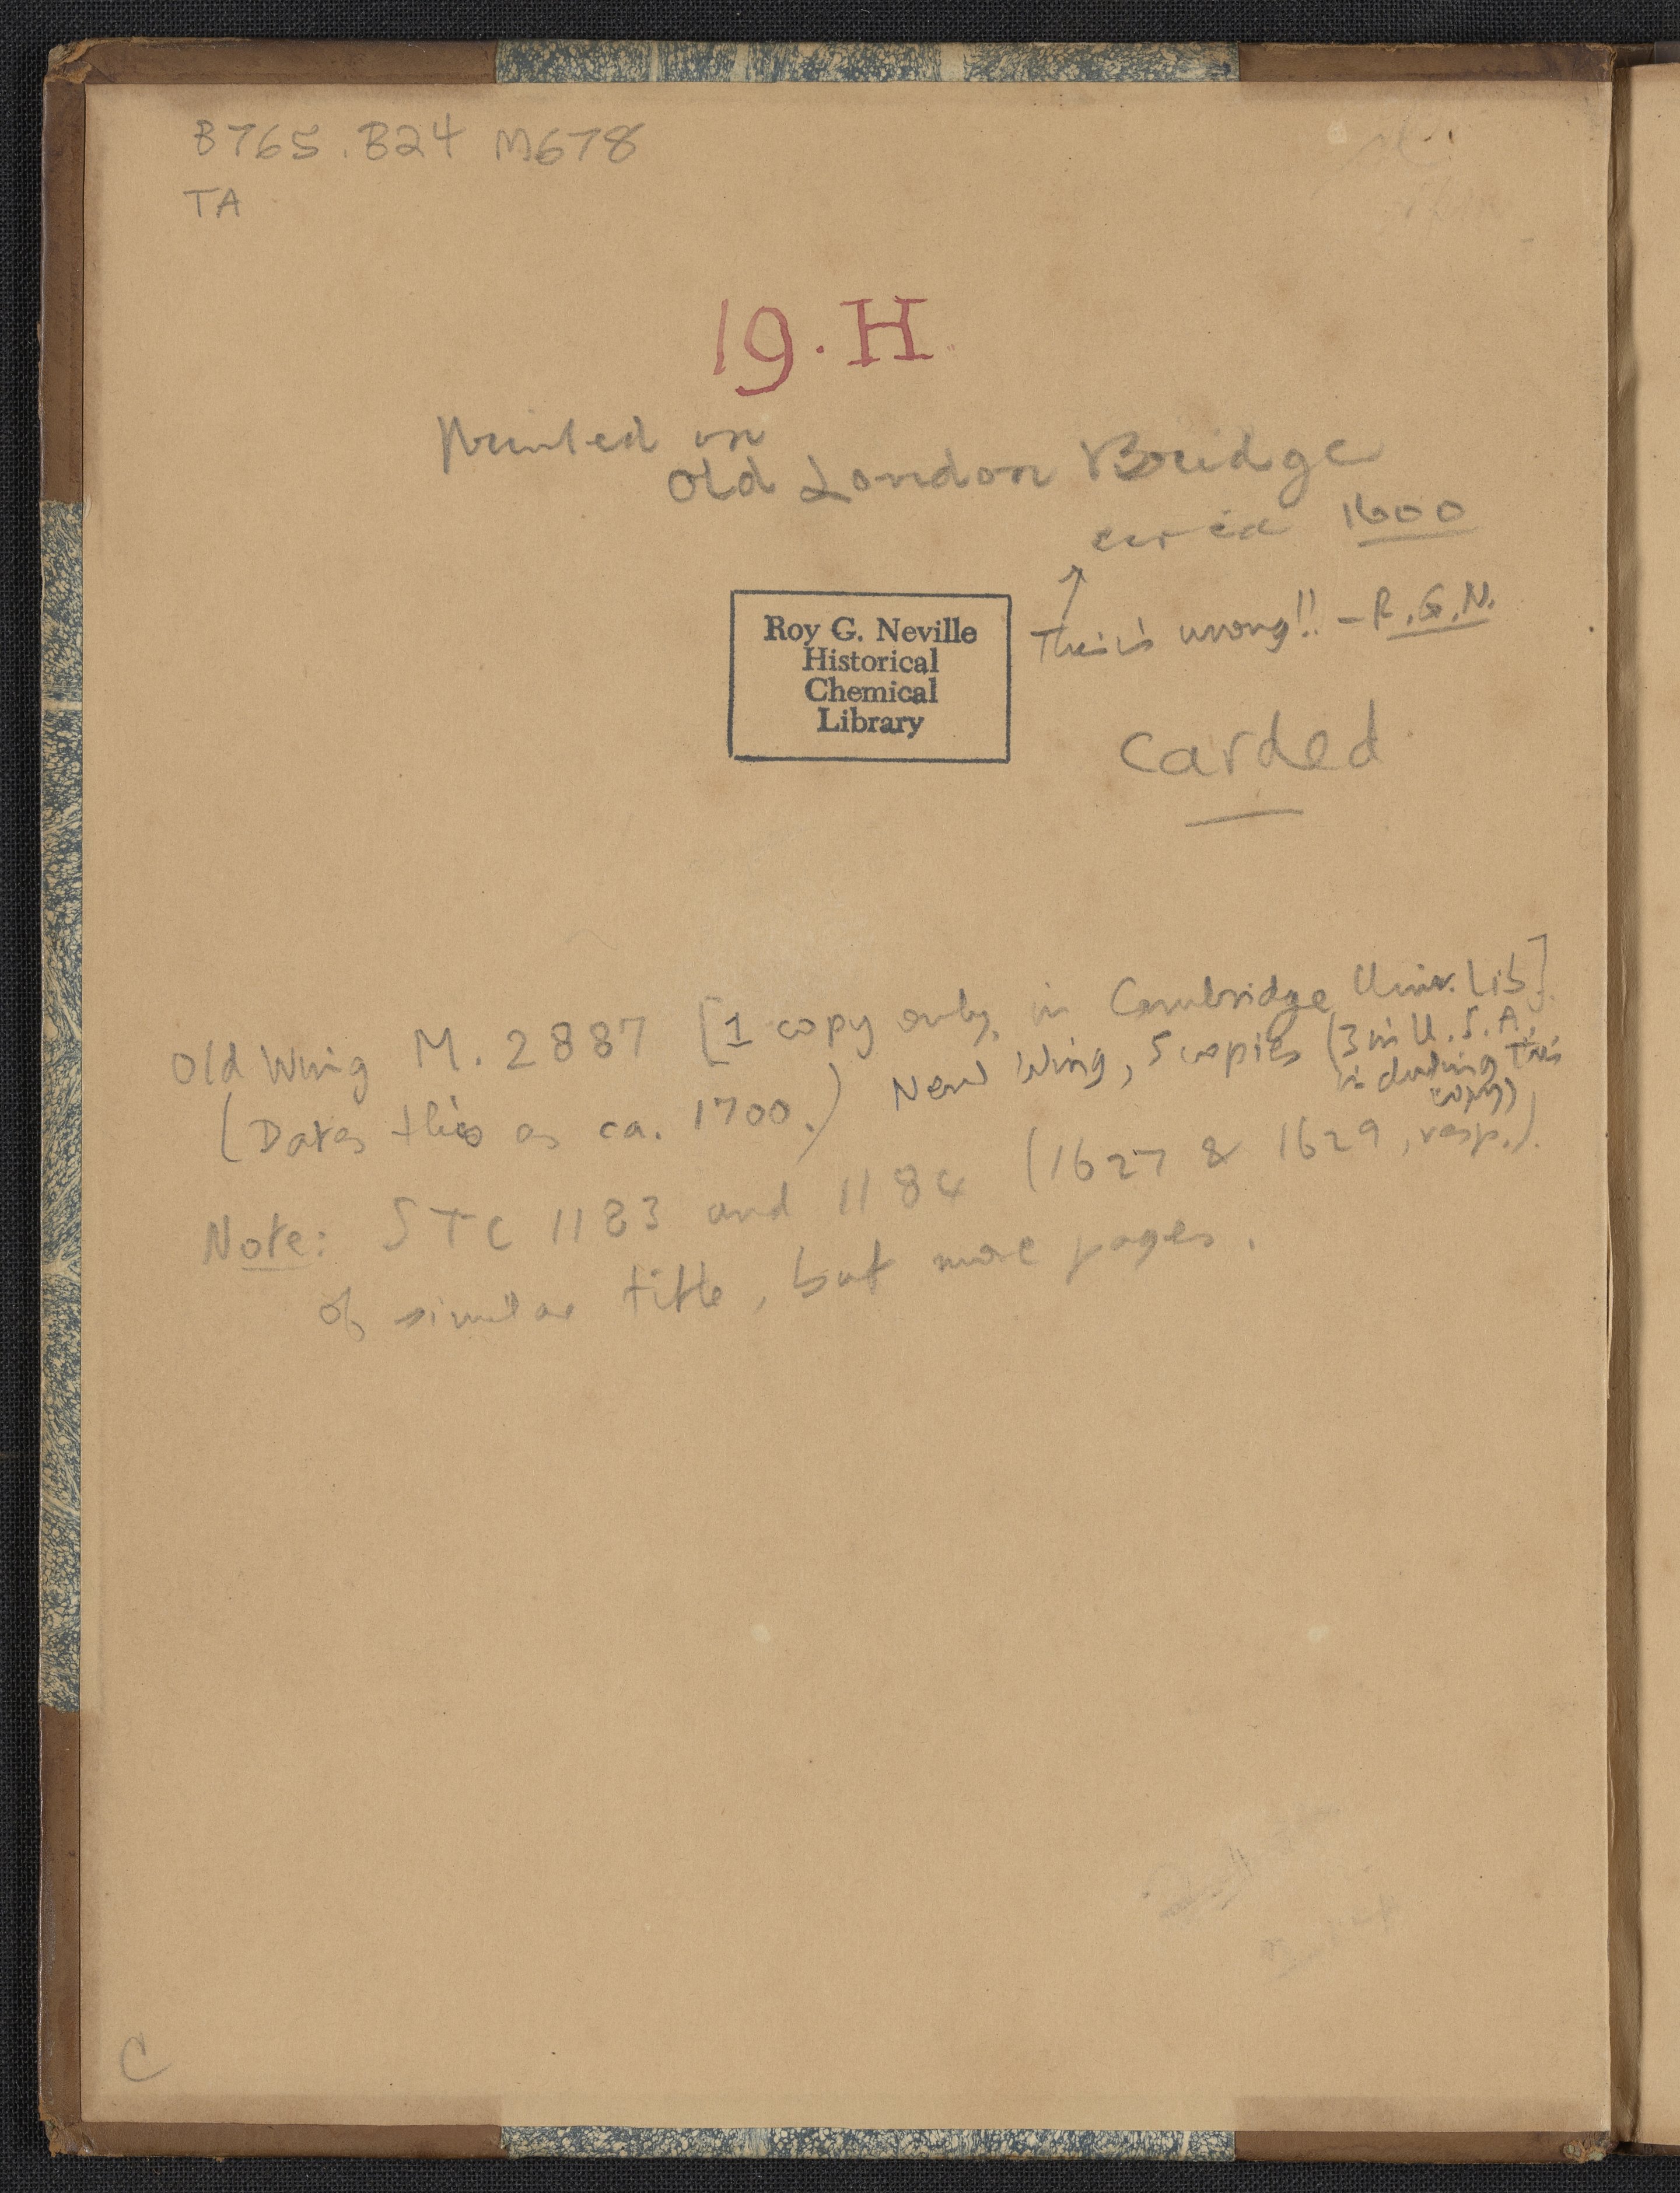 B765.B24 M678
TA
19.H
Printed on
Old London Bridge
circa 1600
This is wrong!! – R.G.N.
Roy G. Neville
Historical
Chemical
Library
Carded
Old Wing M. 2887 [1 copy only, in Cambridge Univ. Lib].
(Dates this as ca. 1700.) New Wing, 5 copies (3 in U.S.A.
including this
copy)
Note: STC 1183 and 1184 (1627 & 1629, resp.).
of similar title, but more pages.
C